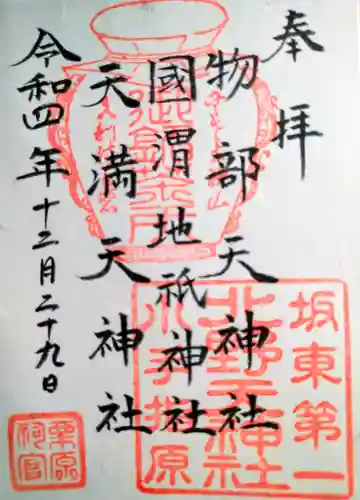 奉拝
物部天神社
國渭地祇神社
天満天神社
令和四年十二月二十九日
坂東第一
北野天神社
小手指原
栗原
祠官